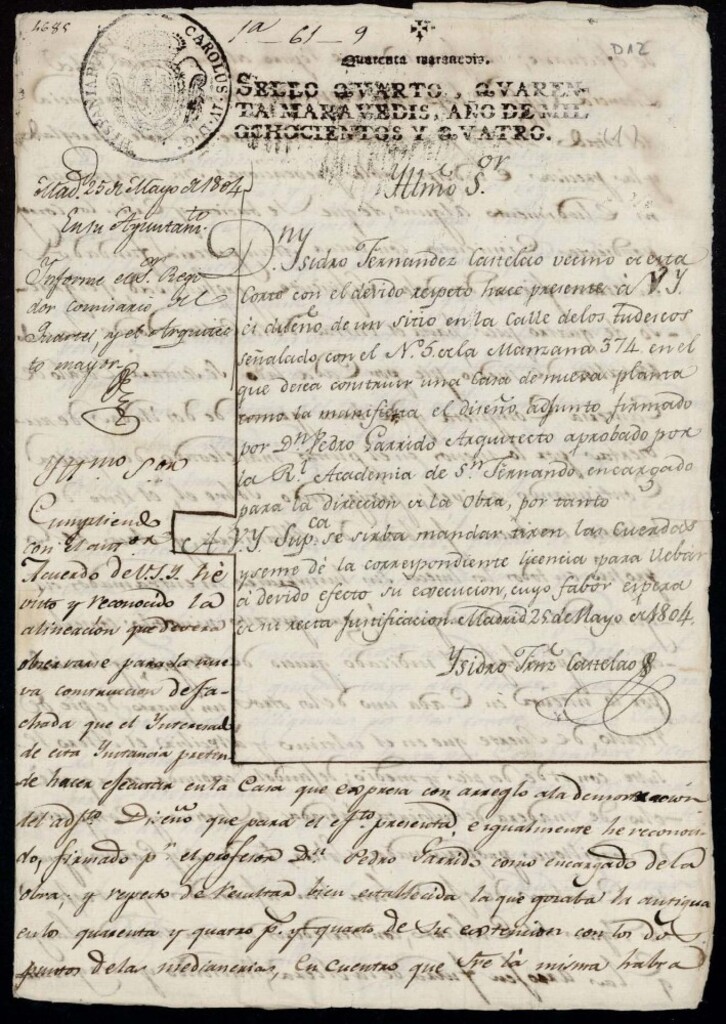 4685
1a - 61 - 9
D12
HISPANIARUM
CAROLUS IV D.G.
Quarenta maravedis.
SELLO QVARTO, QVAREN-
TA MARAVEDIS, AÑO DE MIL
OCHOCIENTOS Y QVATRO.
Yllmo Sor
Madd. 25 de Mayo de 1804
En su Ayuntamto.
Informe el Sr. Regi
dor comisario del
Quartel, y el Arquitec
to mayor.
Dn Ysidro Fernandez Castelao vecino de esta
Corte con el devido respeto hace presente à V.Y.
es dueño de un sitio en la Calle de los Tudescos
señalado con el No. 5 de la Manzana 374. en el
que desea construir una Casa de nueva planta
como la manifiesta el diseño adjunto firmado
por Dn. Pedro Garrido Arquitecto aprobado por
la Rl. Academia de Sn. Fernando, encargado
para la direccion de la Obra, por tanto
A V.Y. Supca. se sirba mandar tiren las Cuerdas
y se me dé la correspondiente licencia para llebar
à devido efecto su execucion, cuyo fabor espera
de mi recta Justificacion. Madrid 25 de Mayo de 1804.
Ysidro Frnz Castelao
Yllmo Sor
Cumpliendo
con El antor
Acuerdo de V.S.Y. he
visto y reconocido la
alineacion que devera
observarse para la nue
va construccion de fa-
chada que el Interesado
de esta Ynstancia preten
de hacer efecutar en la Casa que expresa con arreglo a la demostracion
del adjto. Diseño que para el efto. presenta, e igualmente he reconoci
do, firmado pr. el profesor Dn. Pedro Garrido como encargado de la
obra; y respecto de resultar bien establecida la que gozaba la antigua
en los quarenta y quatro p. y quarto de su extension con los dos
puntos de las medianerias, En cuentro que sre la misma habra